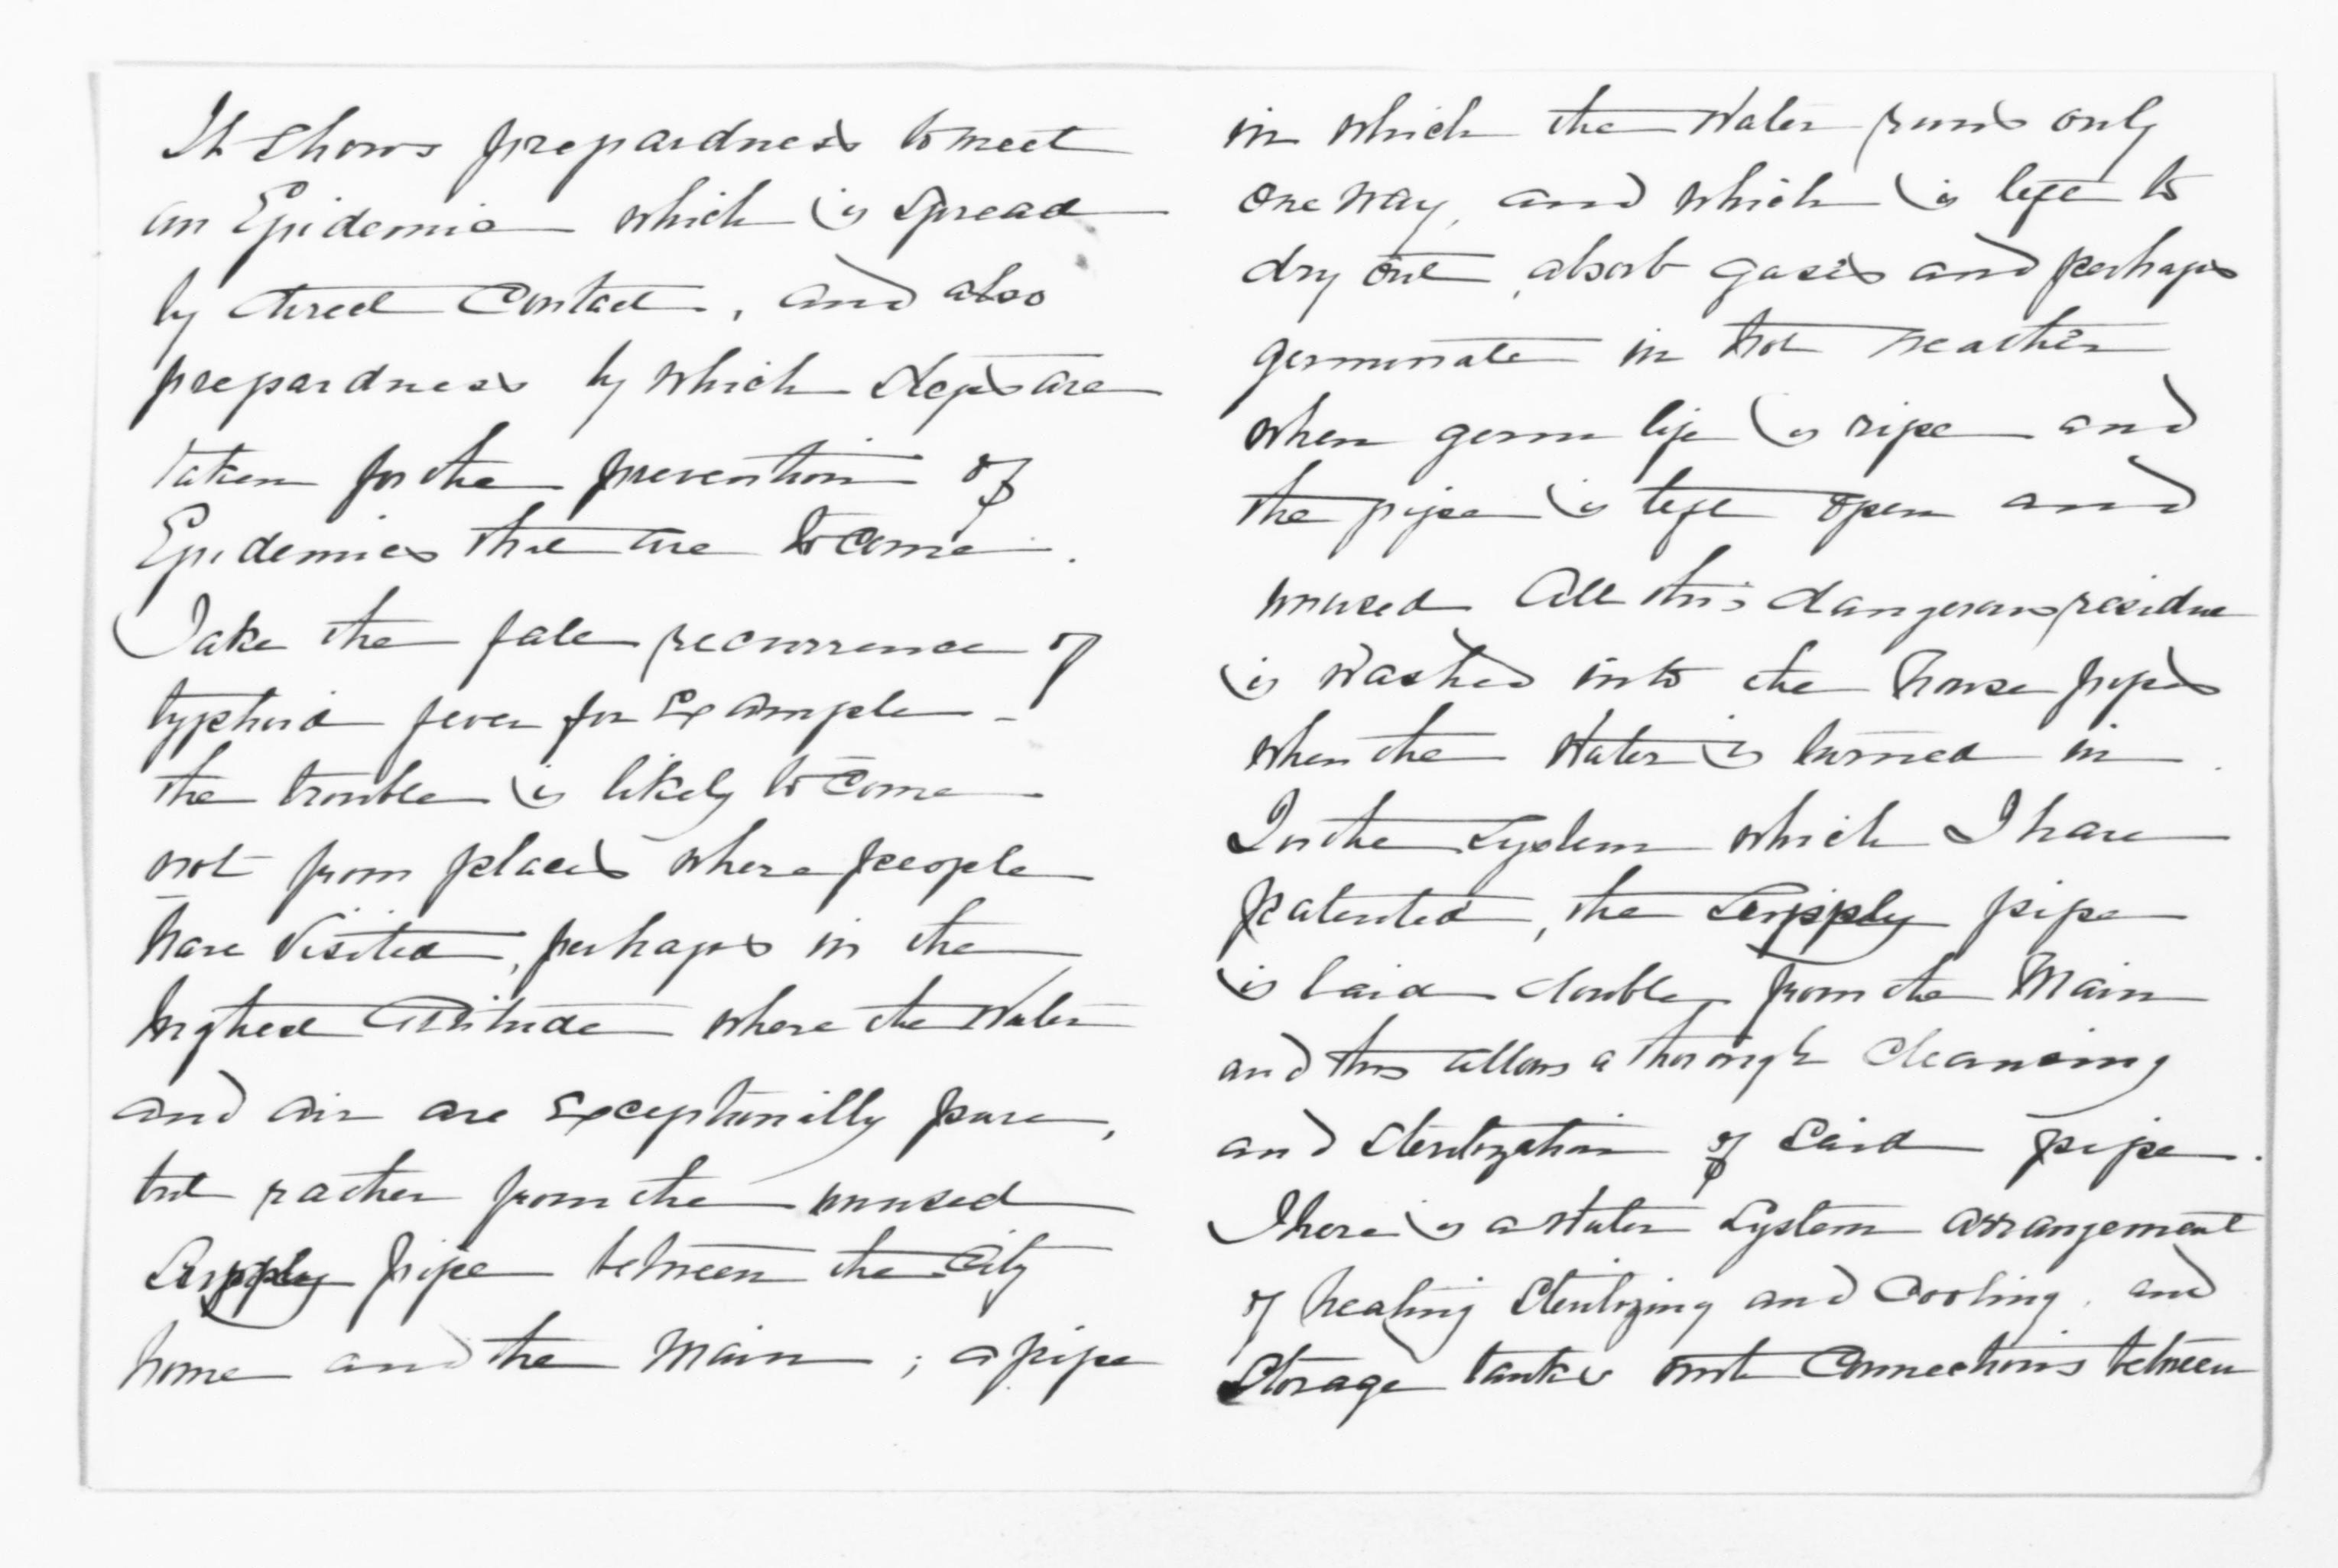 It shows prepardness to meet
an Epidemic which is spread
by direct Contact, and also
prepardness by which steps are
taken for the prevention of
Epidemics that are to come.
Take the fall recurrence of
typhoid fever for Example -
the trouble is likely to come
not from places where people
have visited, perhaps in the
highest altitude where the Water
and air are Exceptionilly pure,
but rather from the unused
Supply pipe between the City
home and the Main ; a pipe
in which the Water runs only
one way, and which is left to
dry out, absorb gases and perhaps
germinate in hot weather
when germ life is ripe and
the pipe is left open and
unused. All this dangerous residue
is washed into the house pipes
when the Water is turned in.
In the System which I have
patented, the Supply pipe
is laid double from the Main
and this allows a thorough Cleansing
and Sterilization of Said pipe.
There is a Water System arrangement
of heating Sterilizing and Cooling, and
Storage tanks with Connections between